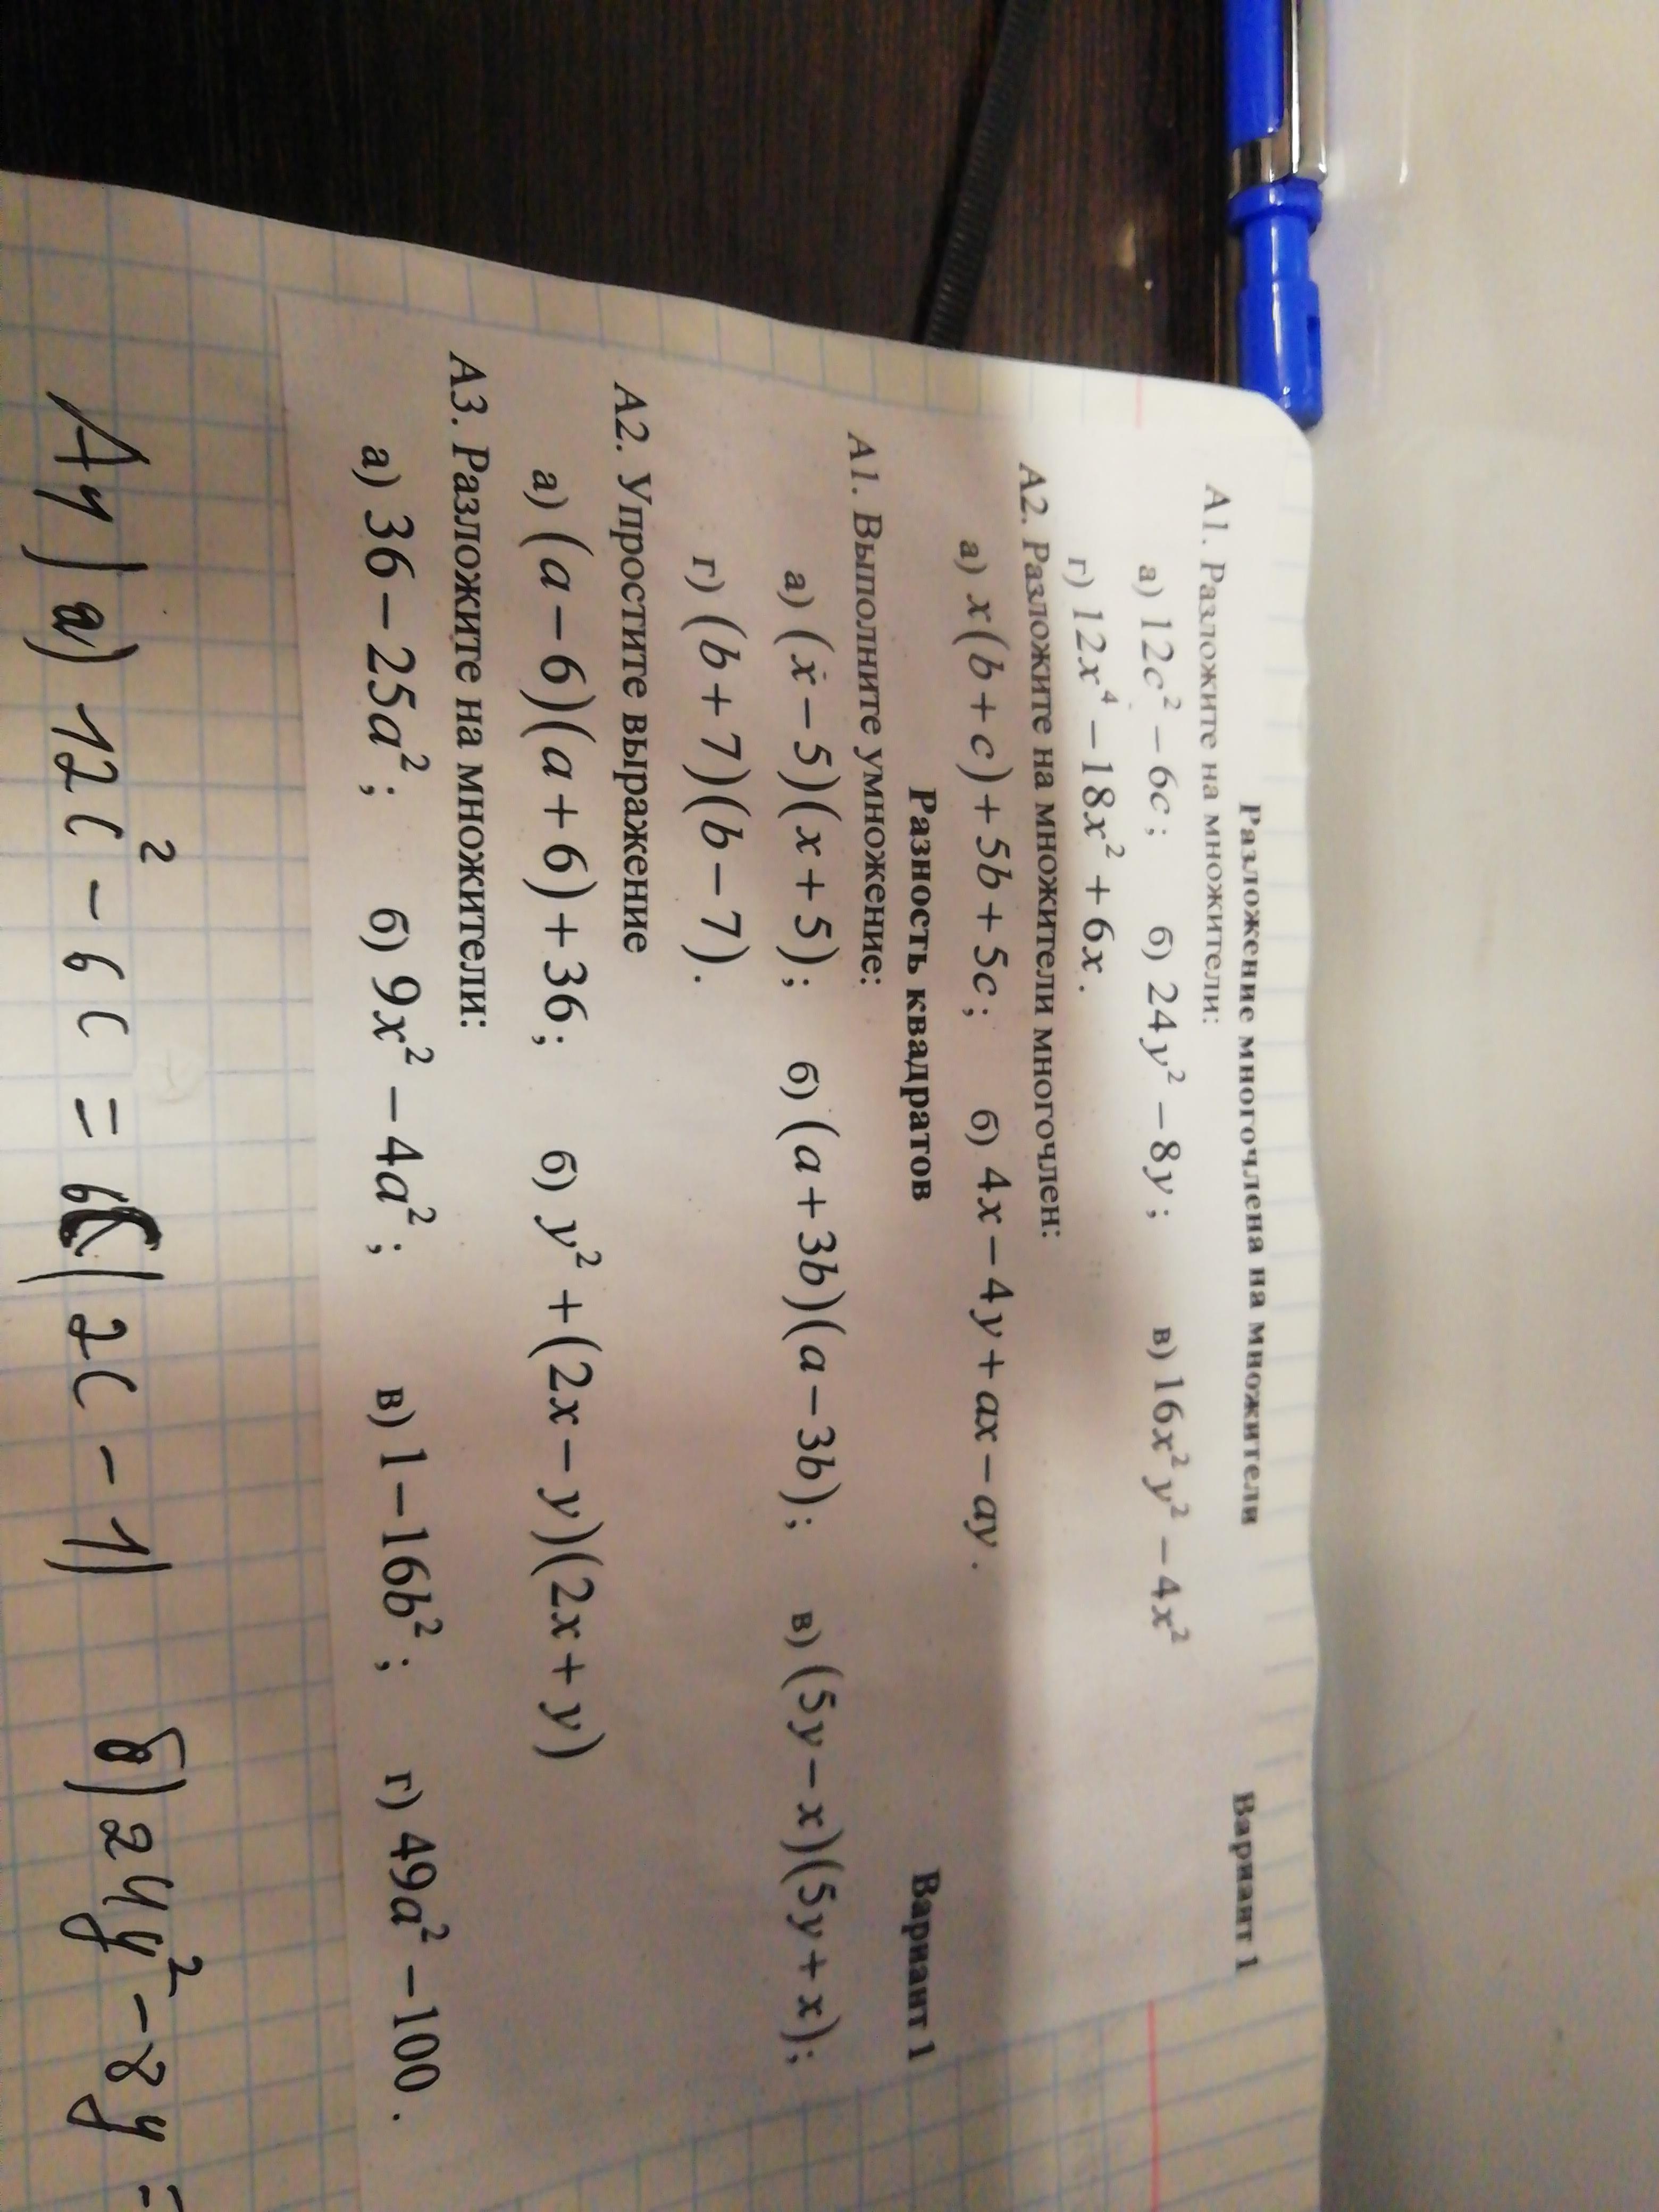 Разложение многочлена на множители Вариант 1
А1. Разложите на множители:
а) 12c² − 6c; б) 24y² − 8y; в) 16x²y² − 4x²
г) 12x⁴ − 18x² + 6x.
А2. Разложите на множители многочлен:
а) x(b + c) + 5b + 5c; б) 4x − 4y + ax − ay.
Разность квадратов Вариант 1
А1. Выполните умножение:
а) (x − 5)(x + 5); б) (a + 3b)(a − 3b); в) (5y − x)(5y + x);
г) (b + 7)(b − 7).
А2. Упростите выражение
а) (a − 6)(a + 6) + 36; б) y² + (2x − y)(2x + y)
А3. Разложите на множители:
а) 36 − 25a²; б) 9x² − 4a²; в) 1 − 16b²; г) 49a² − 100.
А1) а) 12c² − 6c = 6c(2c − 1) б) 24y² − 8y =